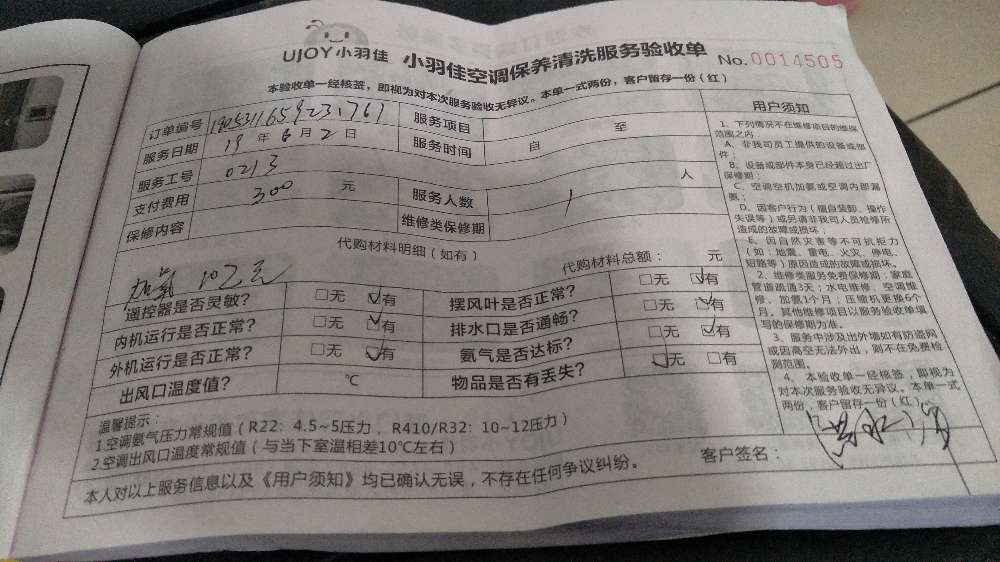 UJOY小羽佳 小羽佳空调保养清洗服务验收单 No.0014505
本验收单一经核签，即视为对本次服务验收无异议。本单一式两份，客户留存一份（红）
订单编号 服务项目
服务日期 19 年 6 月 2 日 服务时间 自 至
服务工号 0213
支付费用 300 元 服务人数 1 人
保修内容 维修类保修期
代购材料明细（如有） 代购材料总额： 元
遥控器是否灵敏？ □无 ☑有 摆风叶是否正常？ □无 ☑有
内机运行是否正常？ □无 ☑有 排水口是否通畅？ □无 ☑有
外机运行是否正常？ □无 ☑有 氨气是否达标？ □无 ☑有
出风口温度值？ ℃ 物品是否有丢失？ ☑无 □有
温馨提示：
1.空调氨气压力常规值（R22：4.5~5压力 、R410/R32：10~12压力）
2.空调出风口温度常规值（与当下室温相差10℃左右）
客户签名：
本人对以上服务信息以及《用户须知》均已确认无误，不存在任何争议纠纷。
用户须知
1、下列情况不在维修项目的维保
范围之内
A、非我司员工提供的设备或部
件；
B、设备或部件本身已经超过出厂
保修期；
C、空调空机加氨或空调内部漏
氨；
D、因客户行为（擅自装卸、操作
失误等）或另请非我司人员检修所
造成的故障或损坏；
E、因自然灾害等不可抗拒力
（如:地震、雷电、火灾、停电、
短路等）原因造成的故障或损坏。
2、维修类服务免费保修期：家庭
管道疏通3天；水电维修、空调维
修、加氨1个月；压缩机更换6个
月。其他维修项目以服务验收单填
写的保修期为准。
3、服务中涉及出外墙如有防盗网
或因高空无法外出，则不在免费检
测范围。
4、本验收单一经核签，即视为
对本次服务验收无异议。本单一式
两份，客户留存一份（红）